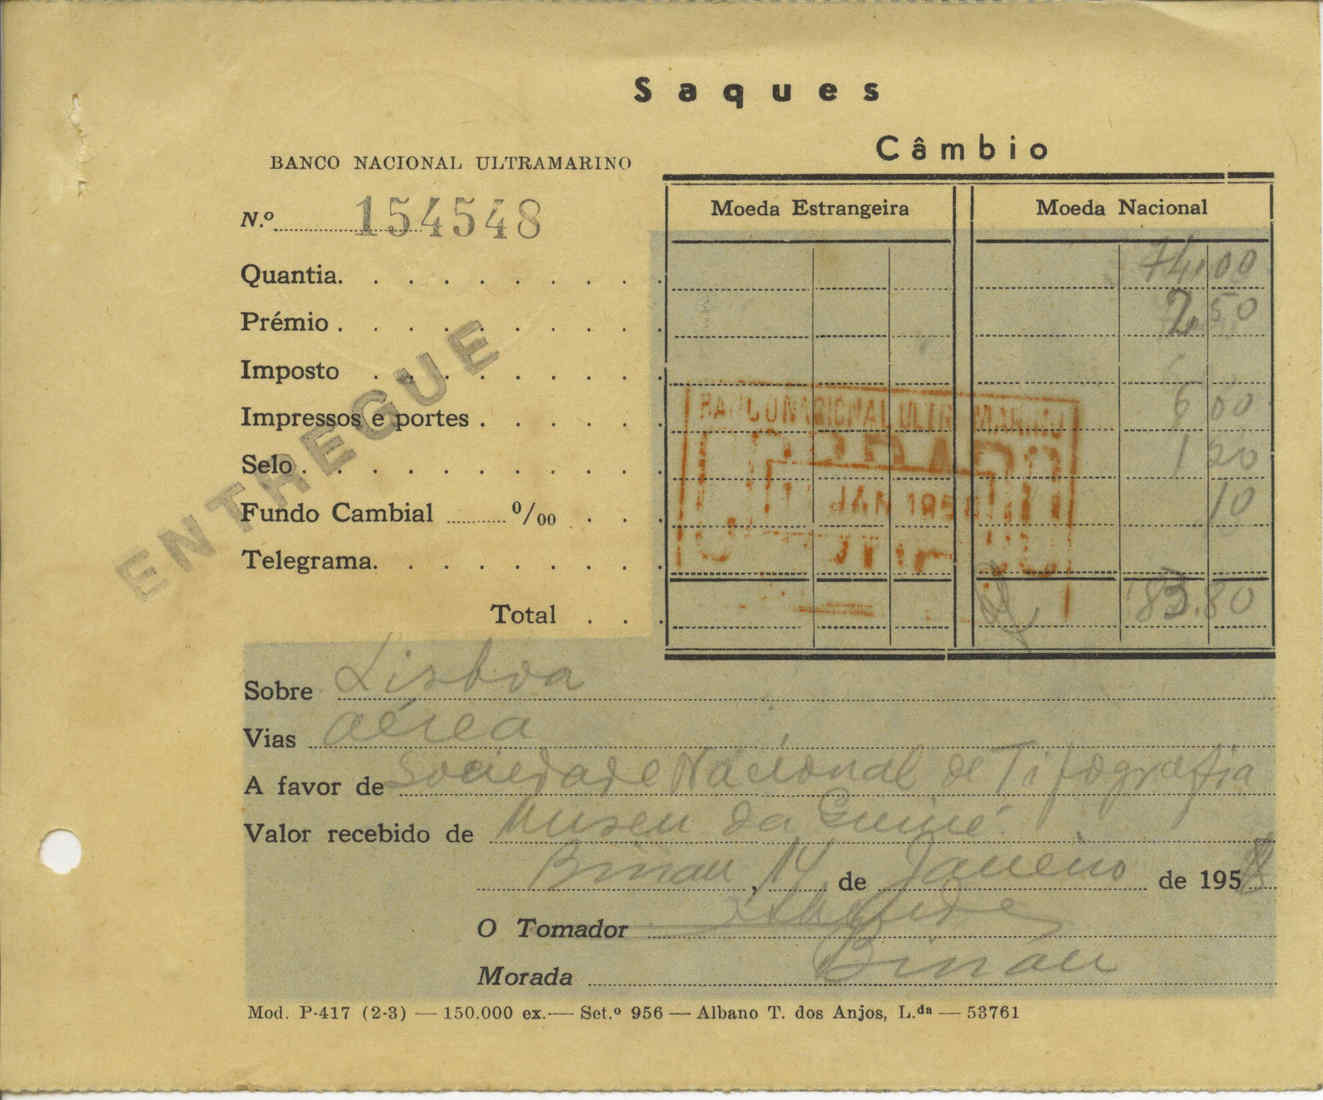 Saques
Câmbio
BANCO NACIONAL ULTRAMARINO
N.º 154548
Moeda Estrangeira Moeda Nacional
Quantia 74,00
Prémio 2,50
Imposto
Impressos e portes 6 00
Selo 1 20
Fundo Cambial 0/00 10
Telegrama
Total 83.80
ENTREGUE
BANCO NACIONAL ULTRAMARINO
JAN 195
Sobre Lisboa
Vias aérea
A favor de Sociedade Nacional de Tipografia
Valor recebido de Museu da Guiné
Bissau, 14 de Janeiro de 1958
O Tomador
Morada Bissau
Mod. P-417 (2-3) — 150.000 ex. — Set.º 956 — Albano T. dos Anjos, L.da — 53761